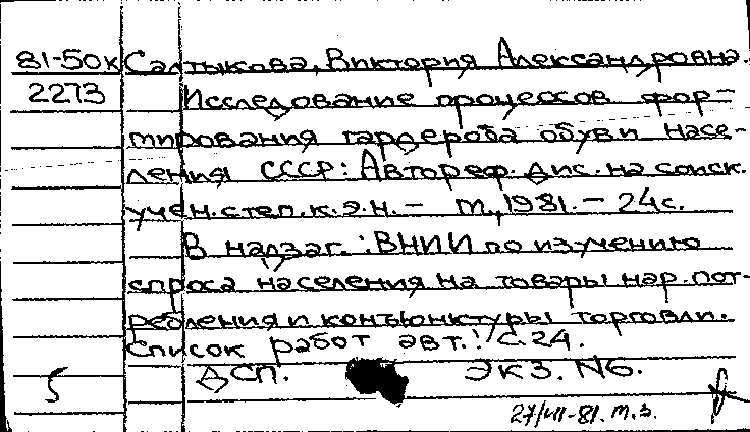 81-50к Салтыкова, Виктория Александровна.
2273 Исследование процессов фор-
мирования гардероба обуви насе-
ления СССР: Автореф. дис. на соиск.
учен. степ. к. э. н. - м., 1981. - 24с.
В надзаг.: ВНИИ по изучению
спроса населения на товары нар. пот-
ребления и конъюнктуры торговли.
Список работ авт.: с. 24.
5 ДСП. ЭКЗ. N6.
27/VII-81. т.з.